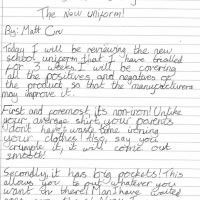 The New uniform!
By: Matt
Today I will be reviewing the new
school uniform that I have trialled
for 3 weeks. I will be covering
all the positives and negatives of
the product so that the manufacturers
may improve it.
First and foremost, its non-iron! Unlike
your average shirt, your parents
dont have waste time ironing
your clothes! Also, say you
crumple it, it will come out
smooth!
Secondly, it has big pockets! This
allows you to put whatever you
want in there! Man! have I